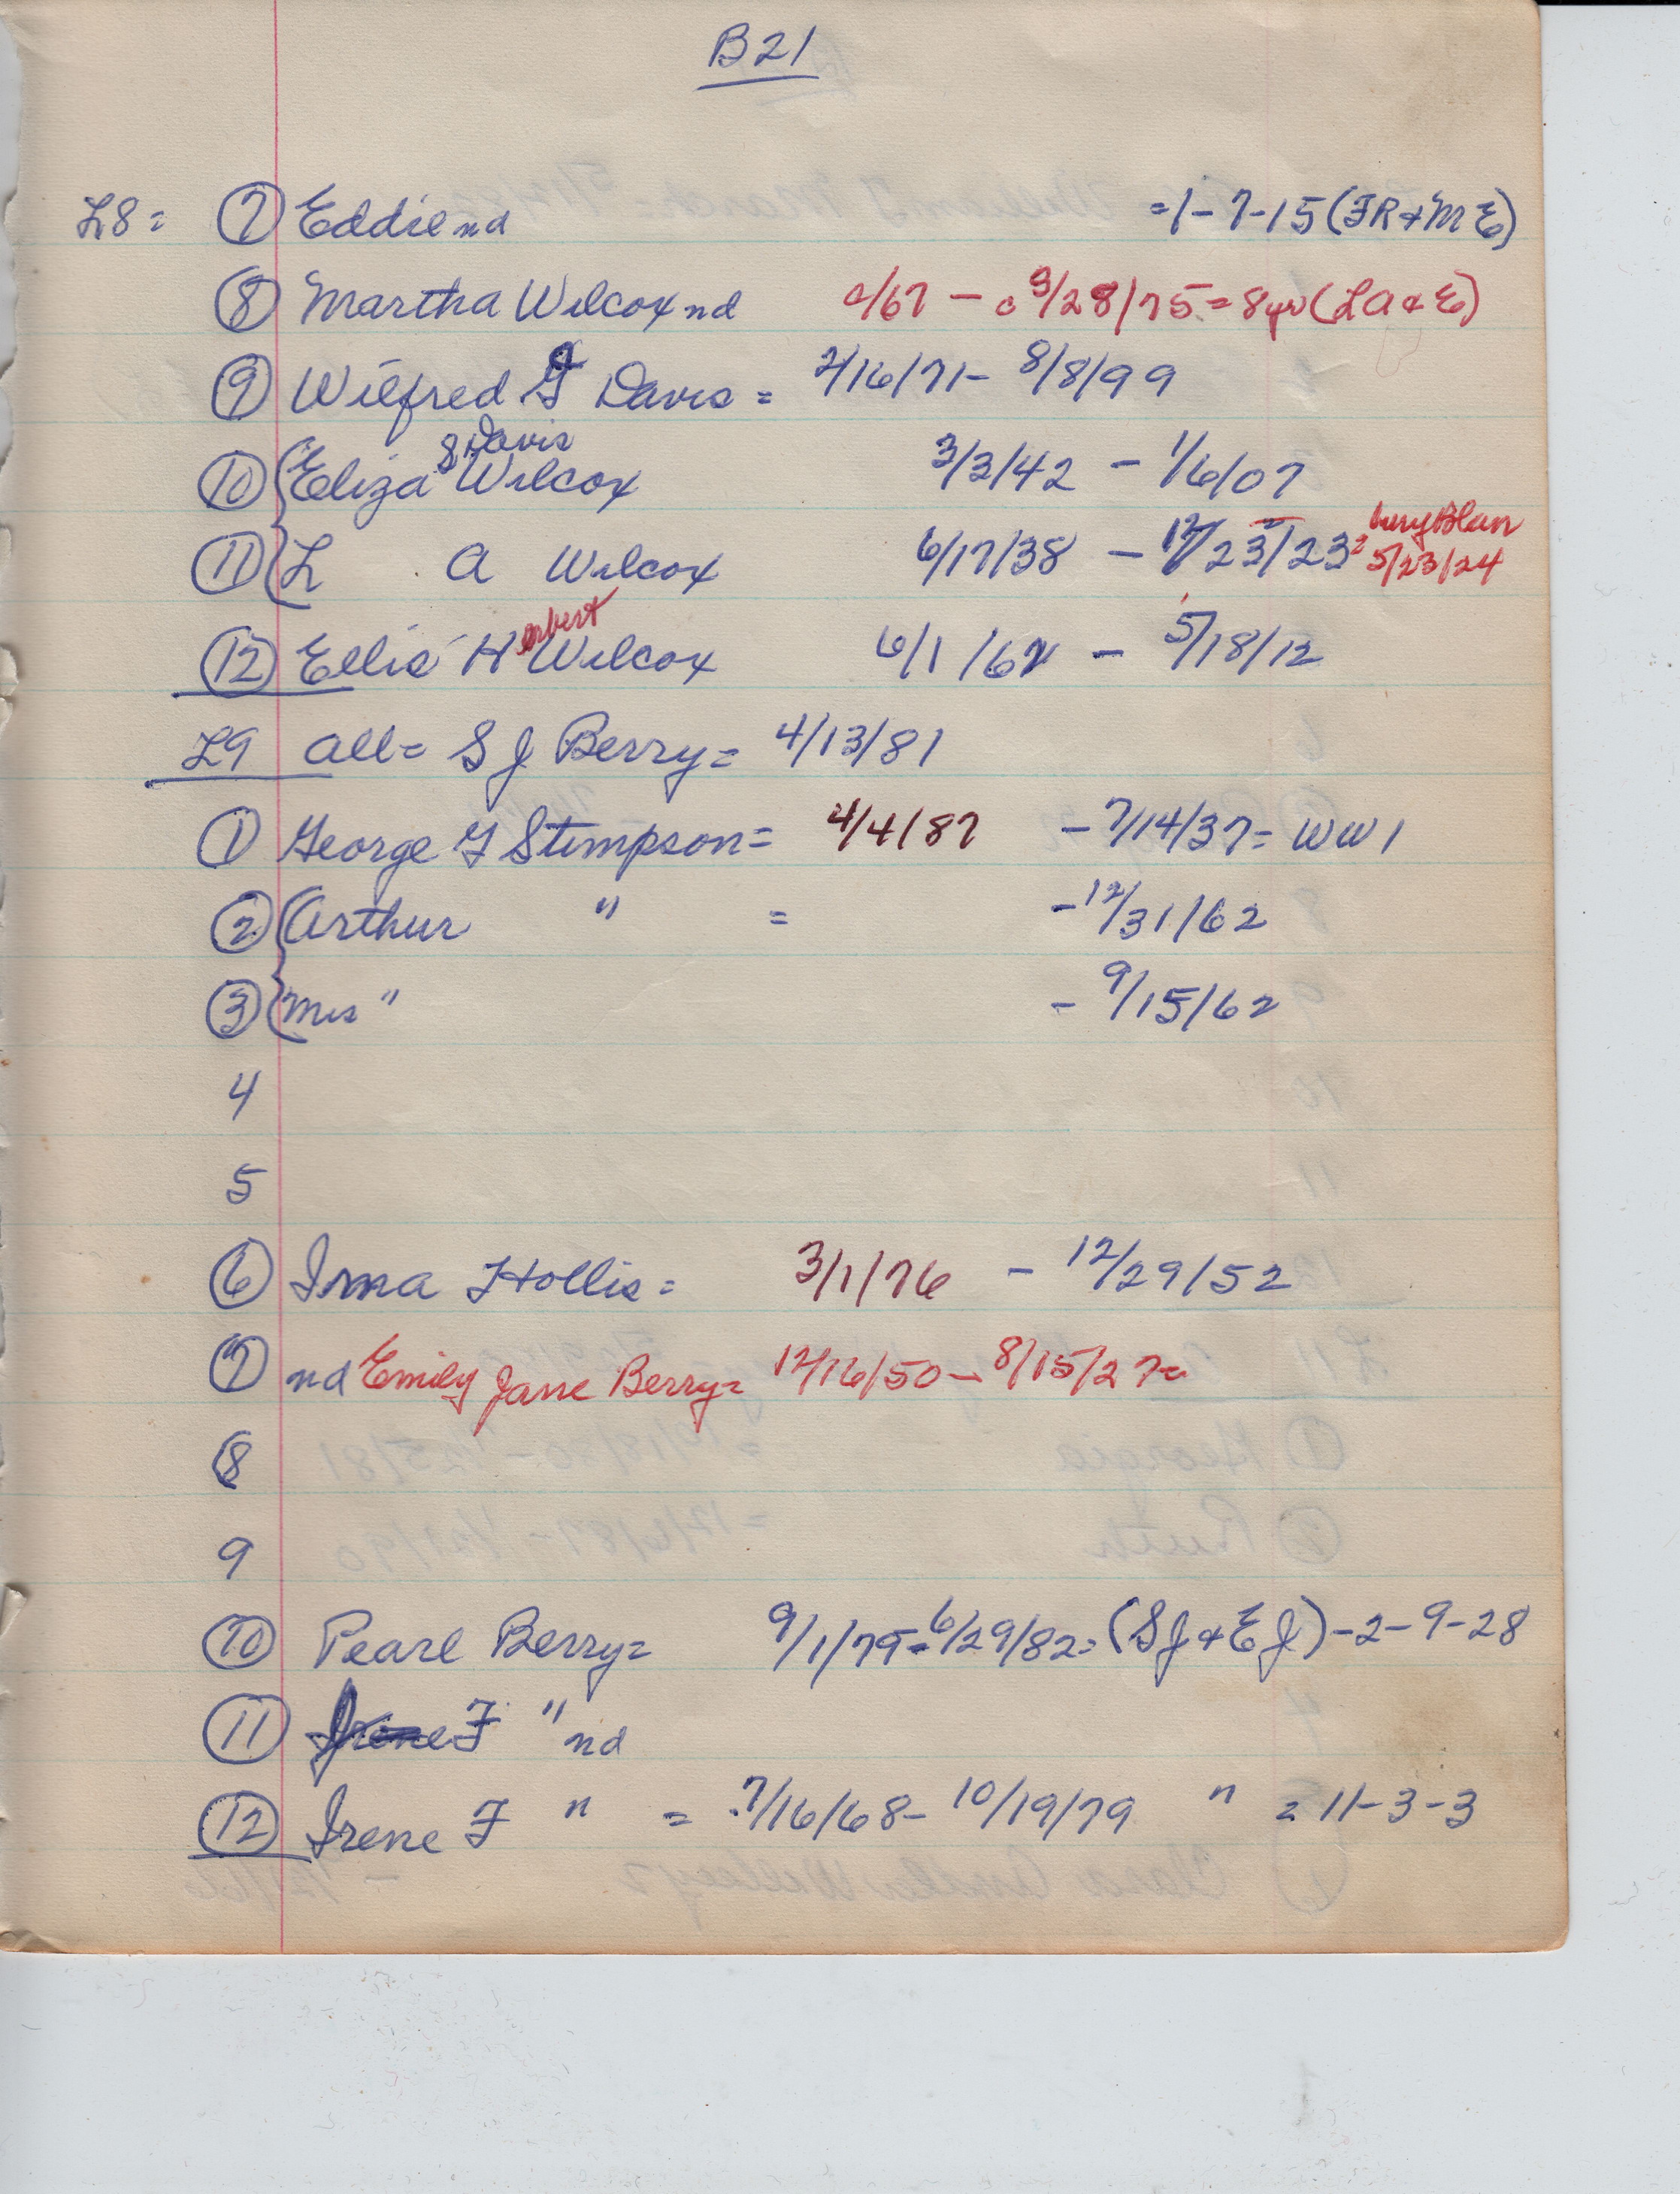 B21
L8 = 7 Eddie nd =1-7-15 (FR + M E)
8 Martha Wilcox nd c/67 - c 9/28/75 = 8 yr (L A & E)
9 Wilfred G Davis = 2/16/71 - 8/8/99
S Davis
10 Eliza Wilcox 3/3/42 - 1/6/07
11 L A Wilcox 6/17/38 - 12/23/23 =
5/23/24
12 Ellis Herbert Wilcox 6/1/62 - 5/18/12
L9 all = S J Berry = 4/13/81
1 George F Stimpson = 4/4/87 - 7/14/37 = WW1
2 Arthur " = - 12/31/62
3 Mrs " - 9/15/62
4
5
6 Irma F Hollis = 3/1/76 - 12/29/52
7 nd Emily Jane Berry = 12/16/50 - 8/15/27 =
8
9
10 Pearl Berry = 9/1/79 - 6/29/82 = (S J + E J) - 2-9-28
11 Irene F " nd
12 Irene F " = 7/16/68 - 10/19/79 " = 11-3-3